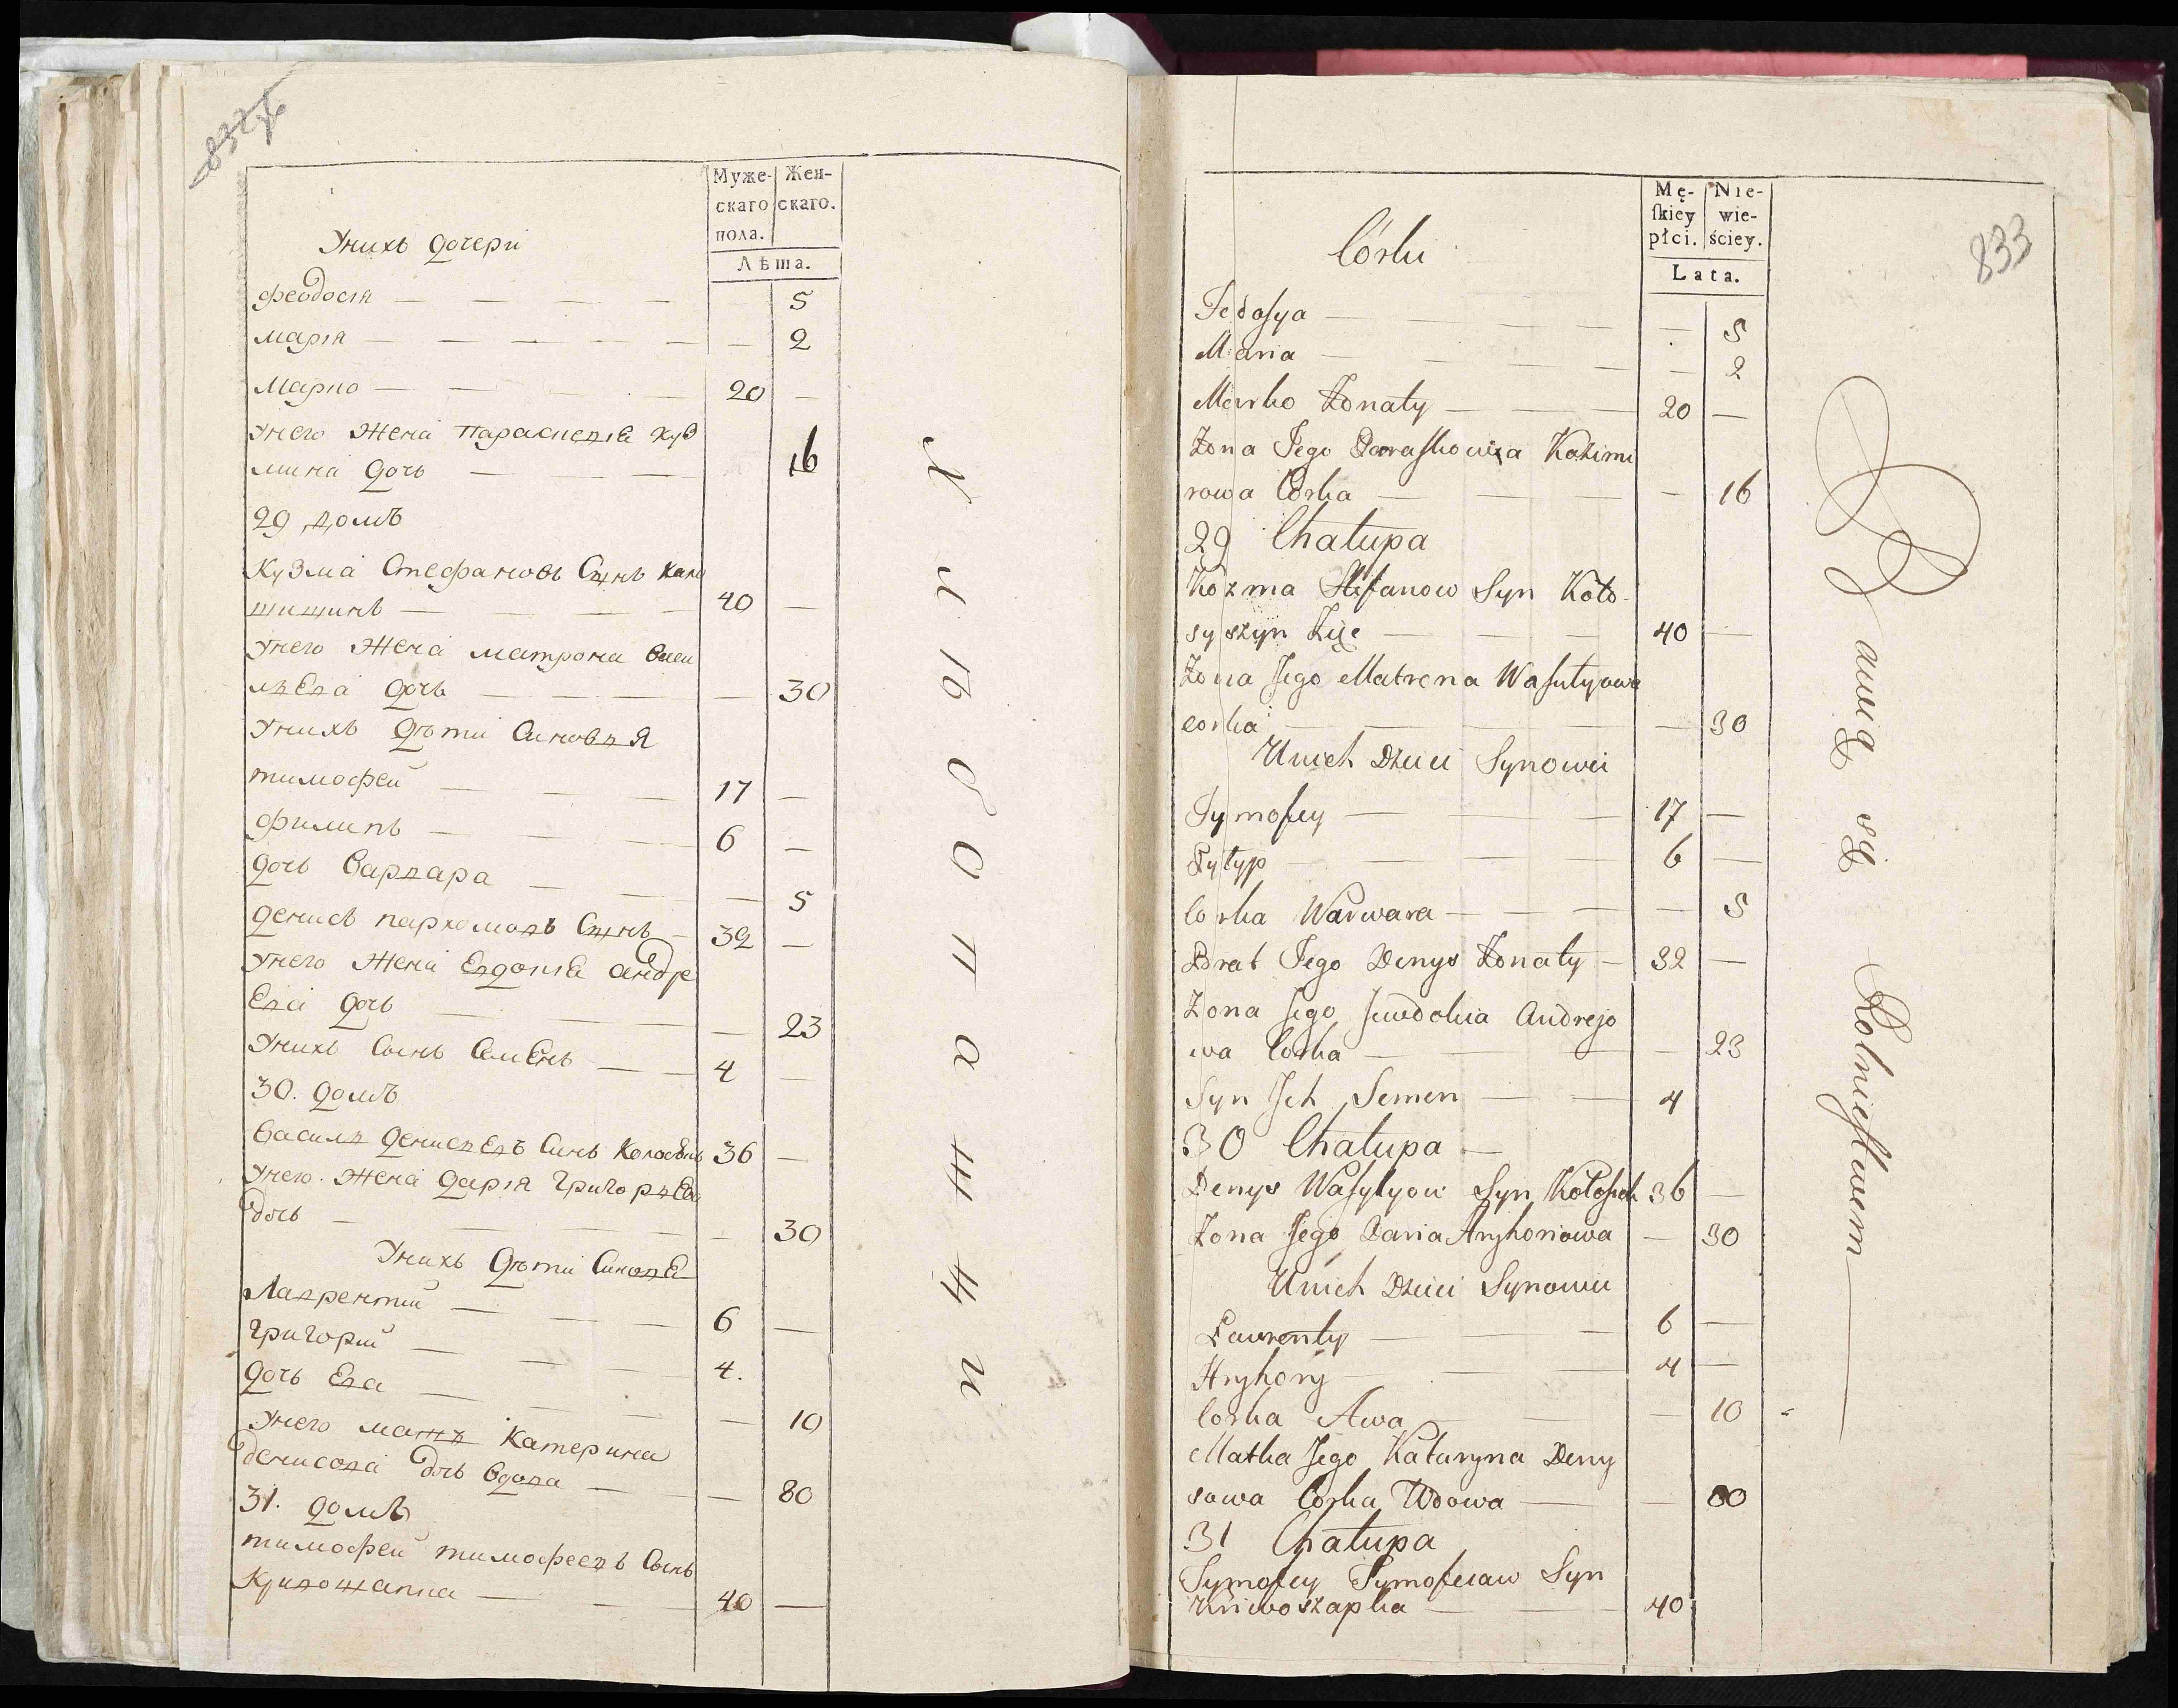 832 об
Муже-
скаго
пола.
Жен-
скаго.
Лѣта.
Унихъ дочери
феодосія — 5
марія — 2
Марко — 20 —
Унего жена параскевія куз
мина дочь — 16
29 домъ
Кузма Стефановъ Сынъ Коло
шишинъ — 40 —
Унего жена матрона Васи
лвева дочь — 30
Унихъ дѣти Синовья
тимофей — 17 —
филипъ — 6 —
дочь варвара — 5
денисъ пархомовъ Сынъ — 32 —
Унего жена Евдокія андре
Ева дочь — 23
Унихъ Сынъ Семенъ — 4 —
30. домъ
Василь денисьевъ Синъ 36 —
Унего жена дарія григорьева
дочь — 30
Унихъ дѣти Синовъя
Лаврентій — 6 —
григорій — 4.
дочь Ева — 10
Унего матъ Катерина
денисова дочь вдова — 80
31. домъ
тимофей тимофеевъ Сынъ
Кривошапка — 40 —
833
Mę-
ſkiey
płci.
Nie-
wie-
ściey.
Lata.
Córki
Fedosya — 5
Maria — 2
Marko Żonaty — 20 —
Żona Jego Paraskowija Kozimi
rowa Corka — 16
29 Chałupa
Kozma Stefanow Syn Koło-
syszyn Żyie — 40 —
Żona Jego Matrena Wasylyowa
corka — 30
Unich Dzieci Synowei
Tymofey — 17 —
Pylyp — 6 —
Corka Warwara — 5
Brat Jego Denys Żonaty — 32 —
Żona Jego Jewdokia Andrejo
wa Corka — 23
Syn Jch Semen — 4
30 Chałupa —
Denys Wasylyow Syn 36 —
Żona Jego Daria Hryhoriowa — 30
Unich Dzieci Synowie
Lawrenty — 6 —
Hryhory — 4 —
Corka Awa — 10
Matka Jego Kataryna Deny
sowa Corka Wdowa — 80
31 Chałupa
Tymofey Tymofeiow Syn
Kriwoszapka — 40
Bawią Się Rolnictwem